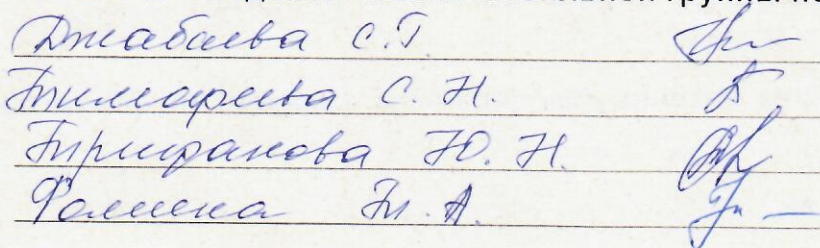 группы
Джабаева С.Г.
Тимофеева С.Н.
Труфанова Ю.Н.
Фомина Т.А.